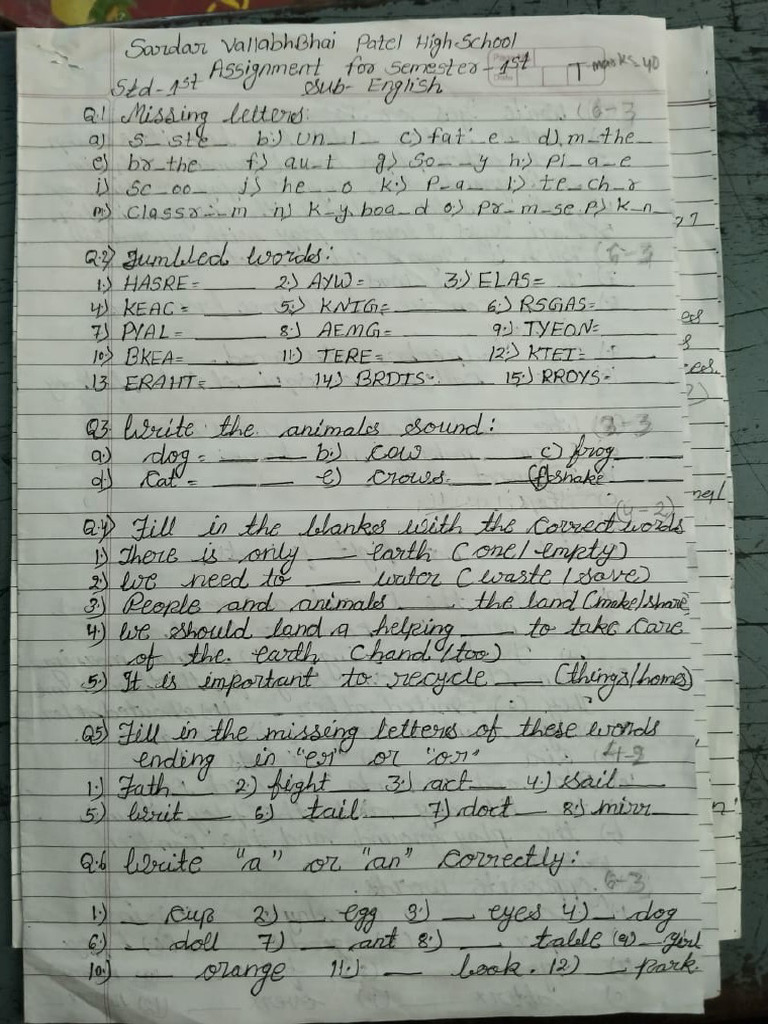 Sardar VallabhBhai Patel High School
Assignment for Semester-1st marks-40
Std-1st Sub- English
Q.1 Missing letters: (6-3
a) S_ste_ b.) Un_l_ c.) fat_e_ d.) m_the_
e) br_the_ f) au_t g) So__y h.) Pl_a_e
i) Sc_oo_ j) he__o k.) P_a_ l.) te_ch_r
m.) Classr__m n) k_y.boa_d o.) Pr_m_se P.) k_n_
Q.2) Jumbled words: (5-3
1.) HASRE=____ 2.) AYW=____ 3.) ELAS=____
4) KEAC=____ 5.) KNIG=____ 6.) RSGAS=____
7) PYAL=____ 8.) AEMG=____ 9.) TYEON=____
10.) BKEA=____ 11.) TERE=____ 12.) KTET=____
13 ERAHT=____ 14) BRDIS-____ 15.) RROYS-
Q3 Write the animales sound: (3-3
a.) dog=____ b.) cow ____ c) frog
d.) Cat=____ e) crows ____ (f) snake
Q.4) Fill in the blankes with the correct words (4-2)
1.) There is only ___ earth (one/empty)
2.) We need to ___ water (waste/save)
3.) People and animales ___ the land (make/share
4.) We should land a helping ___ to take care
of the. earth (hand/too)
5.) It is important to recycle ___ (things/homes)
Q5) Fill in the missing letteres of these words
ending in "er" or "or" 4-2
1.) Fath___ 2.) fight___ 3.) act___ 4.) sail___
5) writ___ 6.) tail___ 7) doct___ 8.) mirr___
Q.6 Write "a" or "an" correctly:
6-3
1.) __ cup 2.) __ egg 3.) __ eyes 4.) __ dog
6.) __ doll 7.) __ ant 8.) __ table (9) __ girl
10.) __ orange 11.) __ book. 12) __ park.